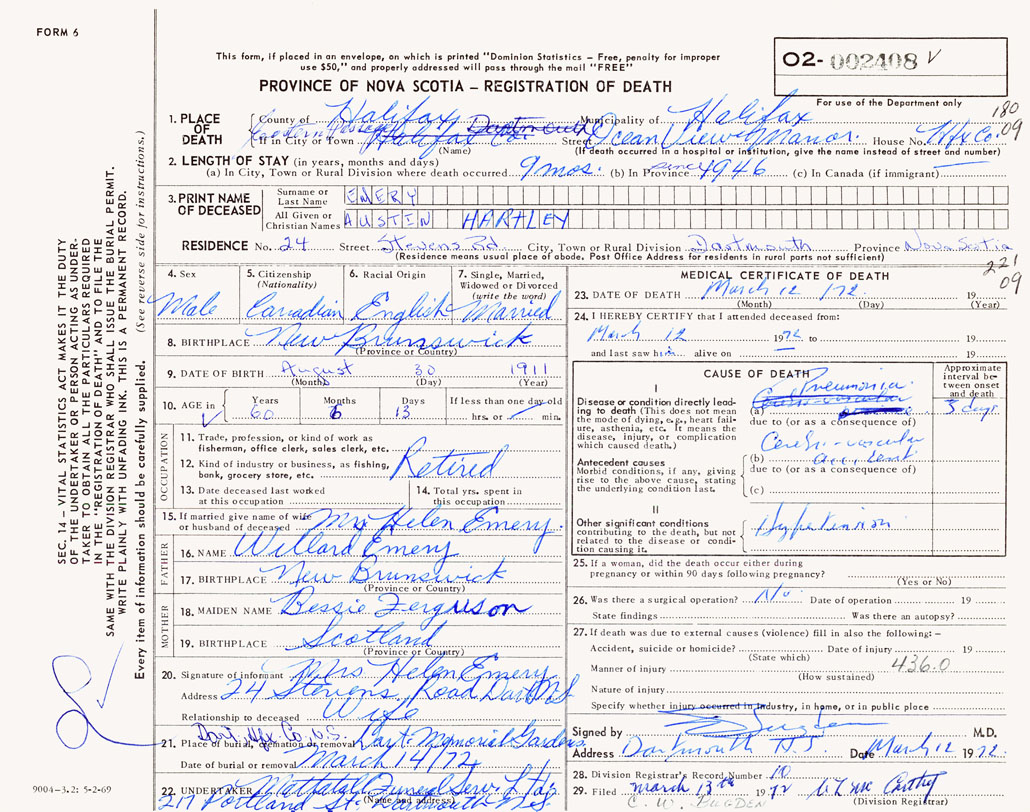 FORM 6
This form, if placed in an envelope, on which is printed "Dominion Statistics – Free, penalty for improper
use $50," and properly addressed will pass through the mail "FREE"
PROVINCE OF NOVA SCOTIA – REGISTRATION OF DEATH
O2- 002408 V
For use of the Department only
180
09
1. PLACE OF DEATH
County of Halifax Municipality of Halifax
If in City or Town Halifax Co. Dartmouth Street Ocean View Manor. House No. Hfx Co.
(Name) (If death occurred in a hospital or institution, give the name instead of street and number)
2. LENGTH OF STAY (in years, months and days)
(a) In City, Town or Rural Division where death occurred 9 mos. (b) In Province since 1946 (c) In Canada (if immigrant)
3. PRINT NAME OF DECEASED
Surname or Last Name EMERY
All Given or Christian Names AUSTIN HARTLEY
RESIDENCE No. 24 Street Stevens Rd. City, Town or Rural Division Dartmouth Province Nova Scotia
(Residence means usual place of abode. Post Office Address for residents in rural parts not sufficient)
221
09
4. Sex Male
5. Citizenship (Nationality) Canadian
6. Racial Origin English
7. Single, Married, Widowed or Divorced (write the word) Married
8. BIRTHPLACE New Brunswick
(Province or Country)
9. DATE OF BIRTH August 30 1911
(Month) (Day) (Year)
10. AGE in Years 60 Months 6 Days 13 If less than one day old
hrs. or min.
OCCUPATION
11. Trade, profession, or kind of work as
fisherman, office clerk, sales clerk, etc.
12. Kind of industry or business, as fishing,
bank, grocery store, etc. Retired
13. Date deceased last worked
at this occupation
14. Total yrs. spent in
this occupation
15. If married give name of wife
or husband of deceased Mrs Helen Emery.
FATHER
16. NAME Willard Emery
17. BIRTHPLACE New Brunswick
(Province or Country)
MOTHER
18. MAIDEN NAME Bessie Ferguson
19. BIRTHPLACE Scotland
(Province or Country)
20. Signature of informant Mrs Helen Emery
Address 24 Stevens Road Dart NS
Relationship to deceased Wife
Dart. Hfx. Co. N.S.
21. Place of burial, cremation or removal Dart. Memorial Gardens
Date of burial or removal March 14/72
22. UNDERTAKER Mattatall Funeral Serv. Ltd.
217 Portland St. Dartmouth N.S.
(Name and address)
MEDICAL CERTIFICATE OF DEATH
23. DATE OF DEATH March 12 /72 19
(Month) (Day) (Year)
24. I HEREBY CERTIFY that I attended deceased from:
March 12 1972 to 19
and last saw him alive on 19
CAUSE OF DEATH
Approximate interval between onset and death
I
Disease or condition directly leading to death (This does not mean the mode of dying, e.g., heart failure, asthenia, etc. It means the disease, injury, or complication which caused death.)
Pneumonia
(a) 3 days
due to (or as a consequence of)
Antecedent causes
Morbid conditions, if any, giving rise to the above cause, stating the underlying condition last.
Cerebro-vascular
(b) accident
due to (or as a consequence of)
(c)
II
Other significant conditions contributing to the death, but not related to the disease or condition causing it.
Hypertension
25. If a woman, did the death occur either during
pregnancy or within 90 days following pregnancy?
(Yes or No)
26. Was there a surgical operation? No. Date of operation 19
State findings Was there an autopsy?
27. If death was due to external causes (violence) fill in also the following: –
Accident, suicide or homicide? Date of injury 19
(State which)
Manner of injury 436.0
(How sustained)
Nature of injury
Specify whether injury occurred in industry, in home, or in public place
Signed by M.D.
Address Dartmouth N.S. Date March 12 1972
28. Division Registrar's Record Number 10
29. Filed March 13th 1972
C. W. BUGDEN (Division Registrar)
SEC. 14 – VITAL STATISTICS ACT MAKES IT THE DUTY
OF THE UNDERTAKER OR PERSON ACTING AS UNDER-
TAKER TO OBTAIN ALL THE PARTICULARS REQUIRED
IN THE "REGISTRATION OF DEATH" AND TO FILE THE
SAME WITH THE DIVISION REGISTRAR WHO SHALL ISSUE THE BURIAL PERMIT.
WRITE PLAINLY WITH UNFADING INK. THIS IS A PERMANENT RECORD.
Every item of information should be carefully supplied. (See reverse side for instructions.)
9004-3.2: 5-2-69